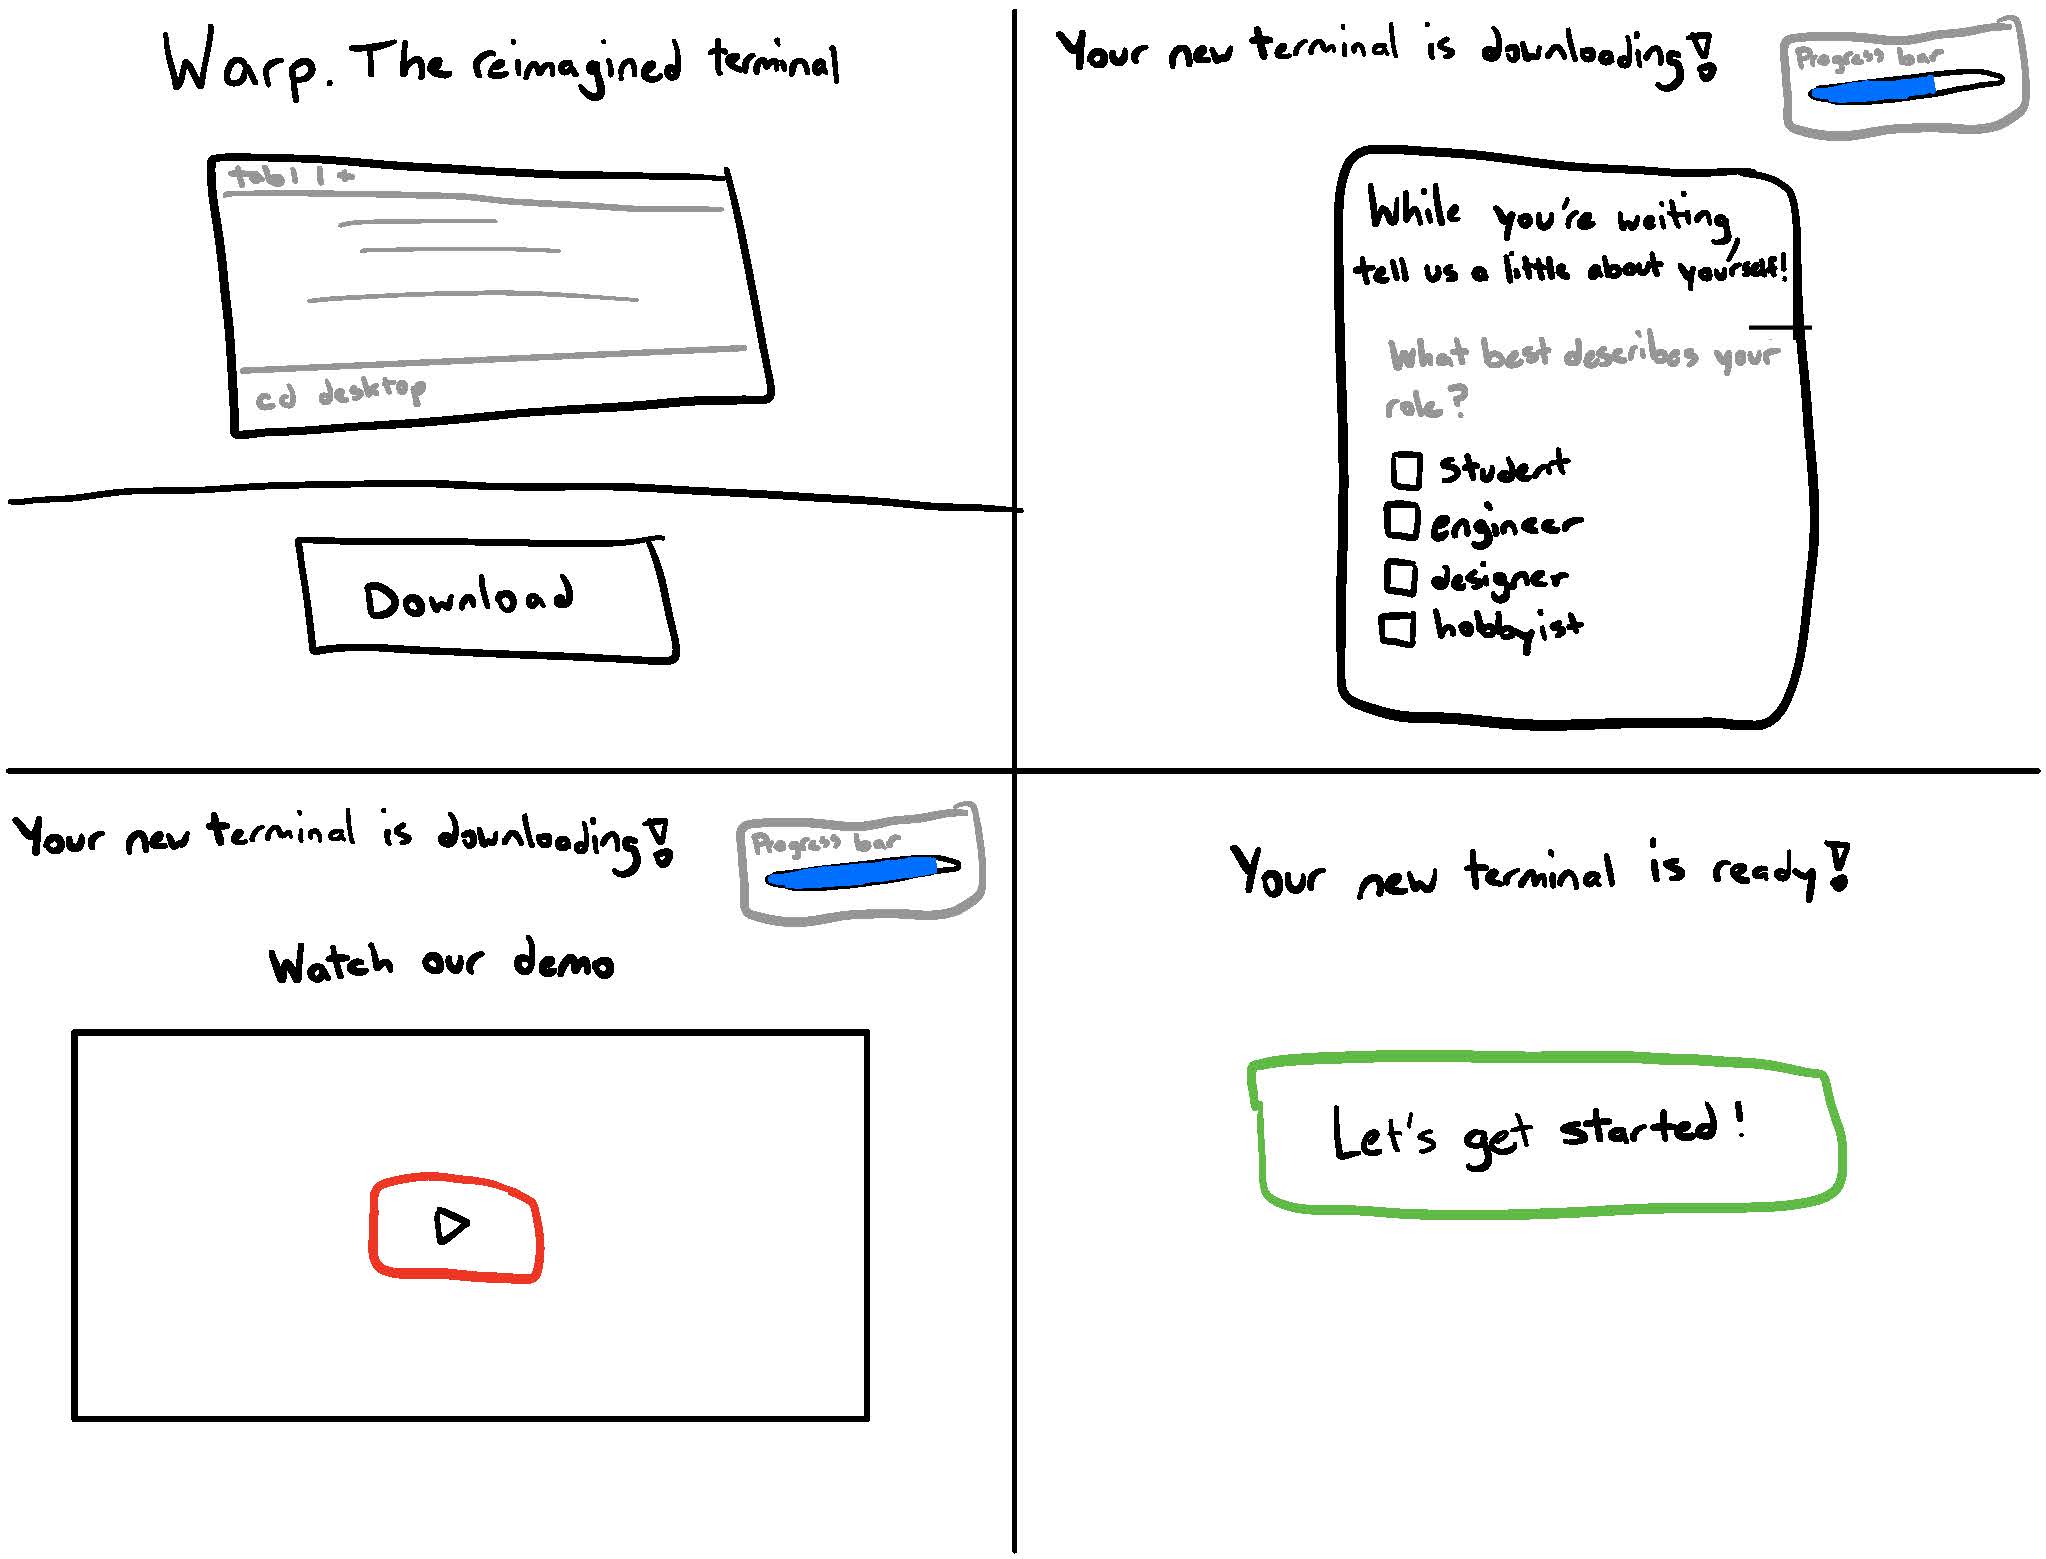 Warp. The reimagined terminal
tab1 | +
cd desktop
Download
Your new terminal is downloading!
Progress bar
While you're waiting,
tell us a little about yourself!
What best describes your
role?
student
engineer
designer
hobbyist
Your new terminal is downloading!
Progress bar
Watch our demo
Your new terminal is ready!
Let's get started!